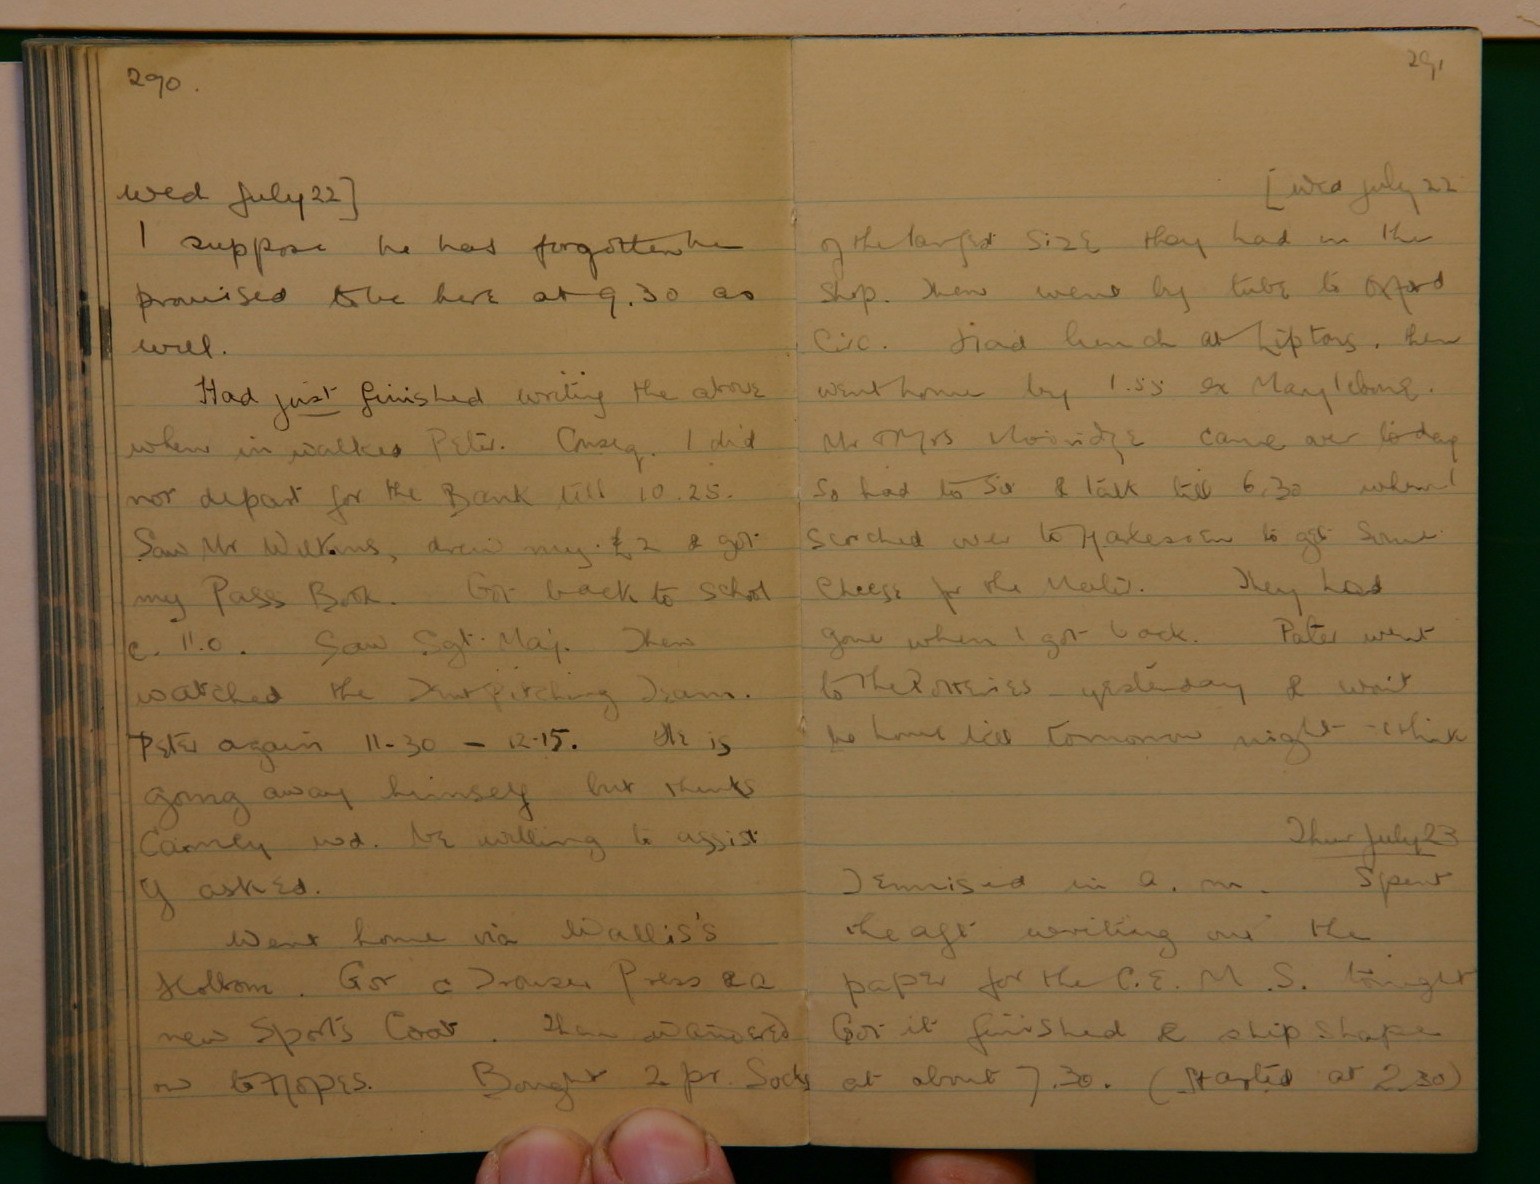 290.
Wed July 22]
I suppose he has forgotten he
promised to be here at 9.30 as
well.
Had just finished writing the above
when in walked Peter. Conseq. I did
not depart for the Bank till 10.25.
Saw Mr Wilkins, drew my £2 & got
my Pass Book. Got back to school
c. 11.0. Saw Sgt. Maj. Then
watched the Tent pitching Team.
Peter again 11-30 - 12.15. He is
going away himself but thinks
Carnely wd. be willing to assist
if asked.
Went home via Wallis's
Holborn. Got a Trouser Press & a
new Sports Coat. Then wandered
on to Hopes. Bought 2 pr. Socks
291
[Wed July 22
of the largest size they had in the
Shop. Then went by tube to Oxford
Circ. Had lunch at Liptons, then
went home by 1.55 ex Marylebone.
Mr & Mrs came over to day
so had to sit & talk till 6.30 when I
scorched over to to get some
cheese for the Mater. They had
gone when I got back. Pater went
to The Potteries yesterday & won't
be home till tomorrow night - I think
Thur July 23
Tennised in a.m. Spent
the aft writing out the
paper for the C.E.M.S. tonight
Got it finished & ship shape
at about 7.30. (Started at 2.30)